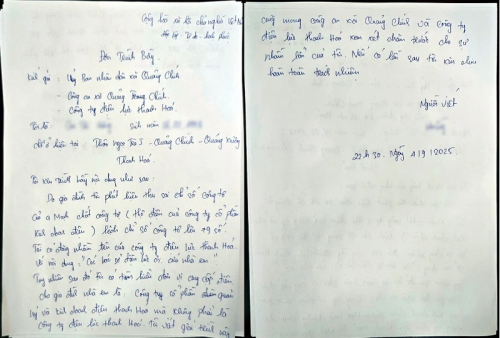 Cộng hòa xã hội chủ nghĩa Việt Nam
Độc lập - Tự do - hạnh phúc
Đơn Trình Bày
Kính gửi: - Uỷ Ban nhân dân xã Quảng Chính
- Công an xã Quảng Chính.
- Công ty điện lực thanh Hoá.
Tôi là: Sinh năm
chỗ ở hiện tại: Thôn Ngọc Trà 3 - Quảng Chính - Quảng Xương
Thanh Hoá.
Tôi xin trình bày nội dung như sau:
Do gia đình tôi phát hiện thấy sai chỉ số công tơ
của a Minh chốt công tơ ( thợ điện của công ty cổ phần
kinh doanh điện ) lệch chỉ số công tơ lên 19 số.
Tôi có đăng nhầm tên của công ty điện lực thanh Hoá
với nội dung "
Tuy nhiên sau đó tôi có tìm hiểu đơn vị cung cấp điện
cho gia đình nhà em là: Công ty cổ phần điện quản
lý và kinh doanh điện thanh Hoá mà không phải là
công ty điện lực thanh Hoá. Tôi viết giấy trình này
cũng mong công an xã Quảng Chính và công ty
điện lực thanh Hoá xem xét châm trước cho sự
nhầm lẫn của tôi. Nếu có lần sau tôi xin chịu
hoàn toàn trách nhiệm.
Người viết
22h30. Ngày 4/9/2025.